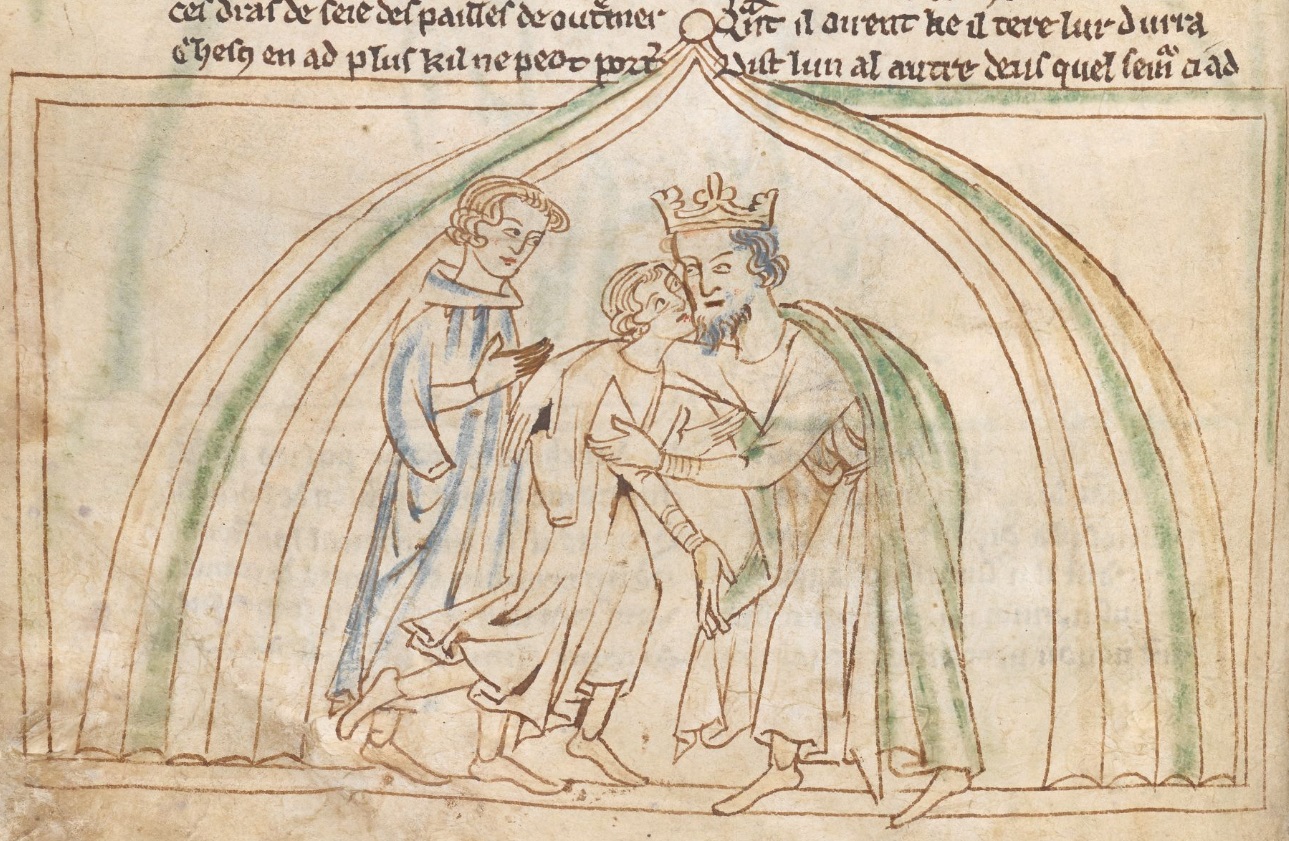 ces dras de seie des pailles de outmer
Chescꝫ en ad plus kil ne peot portꝰ
Qnt il oirent ke il tere lur durra
Dist lun al autre deus quel semᵃ ci ad